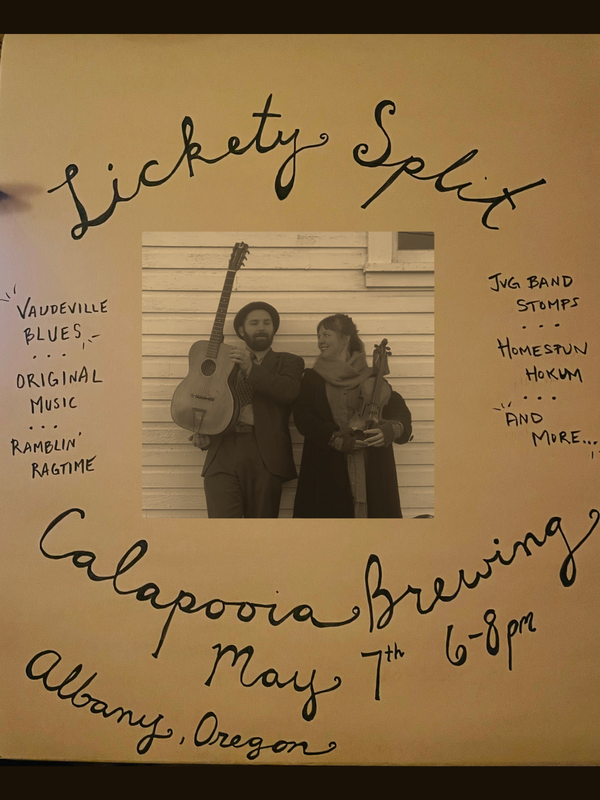 Lickety Split
VAUDEVILLE
BLUES
ORIGINAL
MUSIC
RAMBLIN'
RAGTIME
JUG BAND
STOMPS
HOMESPUN
HOKUM
AND
MORE...
Calapooia Brewing
May 7th 6-8pm
Albany, Oregon